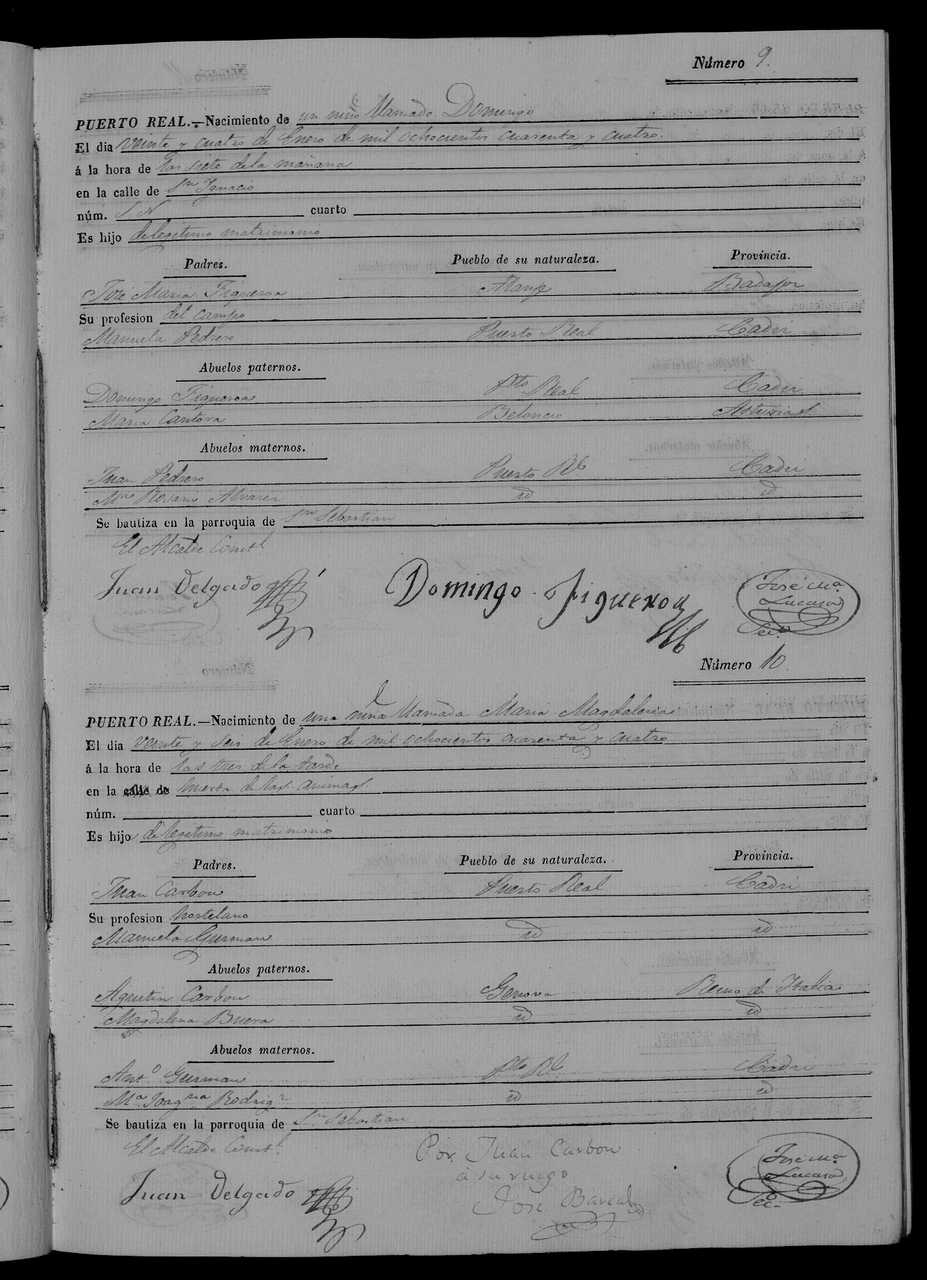 Número 9.
PUERTO REAL.—Nacimiento de un niño llamado Domingo
El dia veinte y cuatro de Enero de mil ochocientos cuarenta y cuatro.
á la hora de las siete de la mañana
en la calle de Sn Ignacio
núm. S N cuarto
Es hijo de legitimo matrimonio
Padres. Pueblo de su naturaleza. Provincia.
José Maria Figueroa Alange Badajoz
Su profesion del campo
Manuela Pedrero Puerto Real Cadiz
Abuelos paternos.
Domingo Figueroa Pto Real Cadiz
Maria Cantora Asturias
Abuelos maternos.
Juan Pedrero Puerto Rl Cadiz
Ma Rosario Alvarez id id
Se bautiza en la parroquia de Sn Sebastian
El Alcalde Constl
Juan Delgado Domingo Figueroa José Ma Lucaso Srio
Número 10.
PUERTO REAL.—Nacimiento de una niña llamada Maria Magdalena
El dia veinte y seis de Enero de mil ochocientos cuarenta y cuatro
á la hora de las tres de la tarde
en la calle de huerta de las animas
núm. cuarto
Es hijo de legitimo matrimonio
Padres. Pueblo de su naturaleza. Provincia.
Juan Carbon Puerto Real Cadiz
Su profesion hortelano
Manuela Gusman id id
Abuelos paternos.
Agustin Carbon Genova Reino de Italia
Magdalena Buera id id
Abuelos maternos.
Anto Gusman Pto Rl Cadiz
Ma Joaqna Rodrigz id id
Se bautiza en la parroquia de Sn Sebastian
El Alcalde Constl Por Juan Carbon
á su ruego
Juan Delgado José José Ma Lucaso